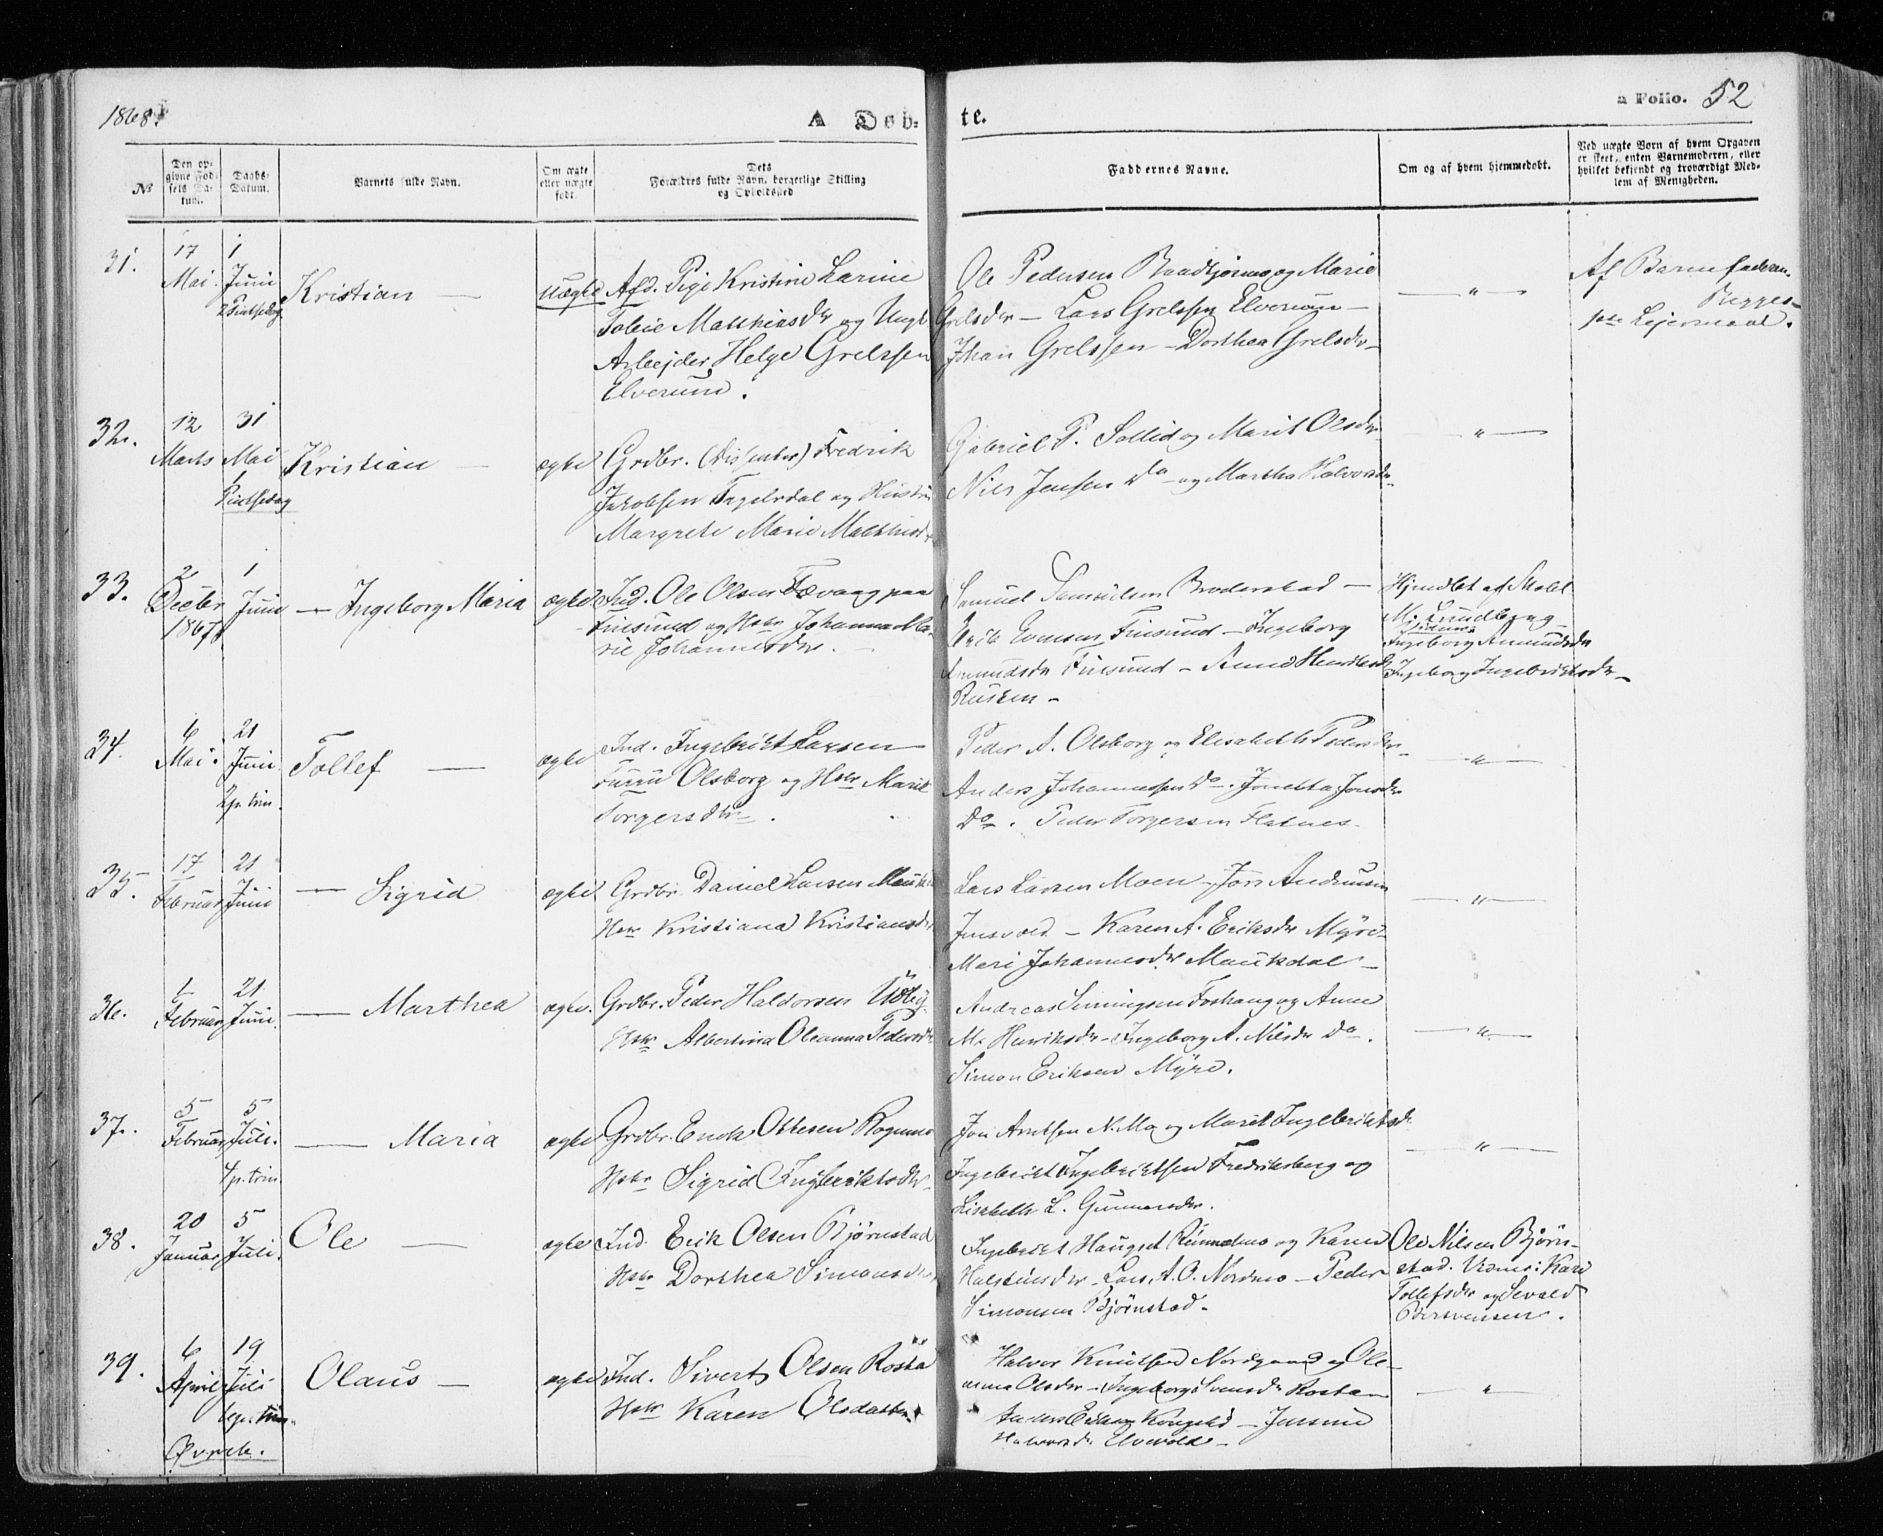 1868.
A Døb-
te.
a Folio. 52
No
Den op-
givne Fød-
sels Da-
tum.
Daabs-
Datum.
Barnets fulde Navn.
Om ægte
eller uægte
født.
Dets
Forældres fulde Navn, borgerlige Stilling
og Opholdssted
Faddernes Navne.
Om og af hvem hjemmedøbt.
Ved uægte Børn af hvem Opgaven
er skeet, enten Barnemoderen, eller
hvilket bekjendt og troværdigt Med-
lem af Menigheden.
31.
17 Mai.
1 Juni
2 Pintsedag
Kristian —
uægte
Afd. Pige Kristine Larine
Tobie Matthiasdr og Ungk
Arbejder Helge Grelssen
Elverum.
Ole Pedersen og Marie
Grelsdr — Lars Grelssen
Johan Grelssen — Dorthea Grelsdr —
— " —
Af Barnefaderen.
Begges
1ste Lejermaal.
32.
12 Marts
31 Mai
Pintsedag
Kristian —
ægte
Grdbr. (Dissenter) Fredrik
Jakobsen og Hustru
Margrete Marie
Gabriel P. Sollid og Marit Olsdr
Nils Jensen Do — og Martha Halvorsdr
— " —
33.
2 Decbr 1867
1 Juni
— Ingeborg Maria
ægte
Ind. Ole Olsen Fævang paa
Finsund og Hstr Johanna Ma-
rie Johannesdr. —
Samuel —
Erik Evensen Finsund — Ingeborg
Amundsdr Finsund — Anne
Rusten —
Hjemdøbt af
M. Lundberg
Ingeborg Amundsdr
Ingeborg Ingebrigtsdr —
34.
6 Mai.
21 Juni
2 p. trin.
Tollef —
ægte
Ind. Ingebrikt Larsen
Olsborg og Hstr Marit
Torgersdtr.
Peder A. Olsborg og Elisabeth Pedersdr —
Anders Johannessen Do. Jonetta Jonsdr
Do. Peder Torgersen Flatnes.
— " —
35.
17 Februar
21 Juni
— Sigrid
ægte
Grdbr. Daniel Larsen
Hstr Kristiana Kristiansdr
Lars Larsen Moen — Jørs Andreassen
— Karen A. Eriksdr Myre
Mari Johannesdr. Maukdal —
— " —
36.
1 Februar
21 Juni
— Marthea
ægte.
Grdbr. Peder Haldorsen Udby
Hstr Albertina Oleanna Pedersdr
Andreas Foshaug og Anne
M. Henriksdr — Ingeborg A. Nilsdr Do.
Simon Eriksen Myre.
— " —
37.
5 Februar
5 Juli.
4 p. trin.
— Maria
ægte
Grdbr. Enok Ottesen
Hstr Sigrid Ingebriktsdr
Jon Arntsen N. Mo og Marit Ingebriktsdr
Ingebrikt Ingebriktsen Fredriksberg og
Lisabeth L. Gunnarsdr.
— " —
38.
20 Januar
5 Juli.
Ole —
ægte
Ind. Erik Olsen Bjørnstad
Hstr Dorthea Simonsdr
Ingebrikt og Karen
Halstensdr — Lars A. O. Nordmo — Peder
Simonsen Bjørnstad.
Ole Nilsen Bjørn-
stad. Vidner: Kari
Tollefsdr og Sevald
39.
6 April
19 Juli
6 p. trin
Øvrevk.
Olaus —
ægte
Ind. Sivert Olsen Rosta
Hstr Karen Olsdatter
Halvor Knudsen Nordgaard og Ole-
anna Olsdr — Ingeborg Svensdr Rosta —
Anders — Jensine
Halvorsdr Elvevold —
— " —